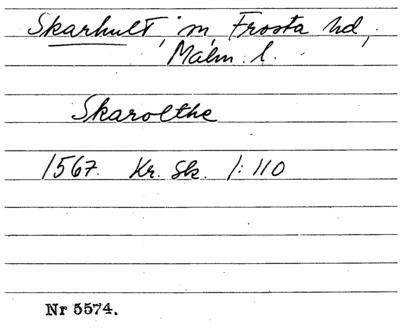 Skarhult, sn, Frosta hd,
Malm. l.
Skarolthe
1567. Kr. Sk. 1:110
Nr 5574.